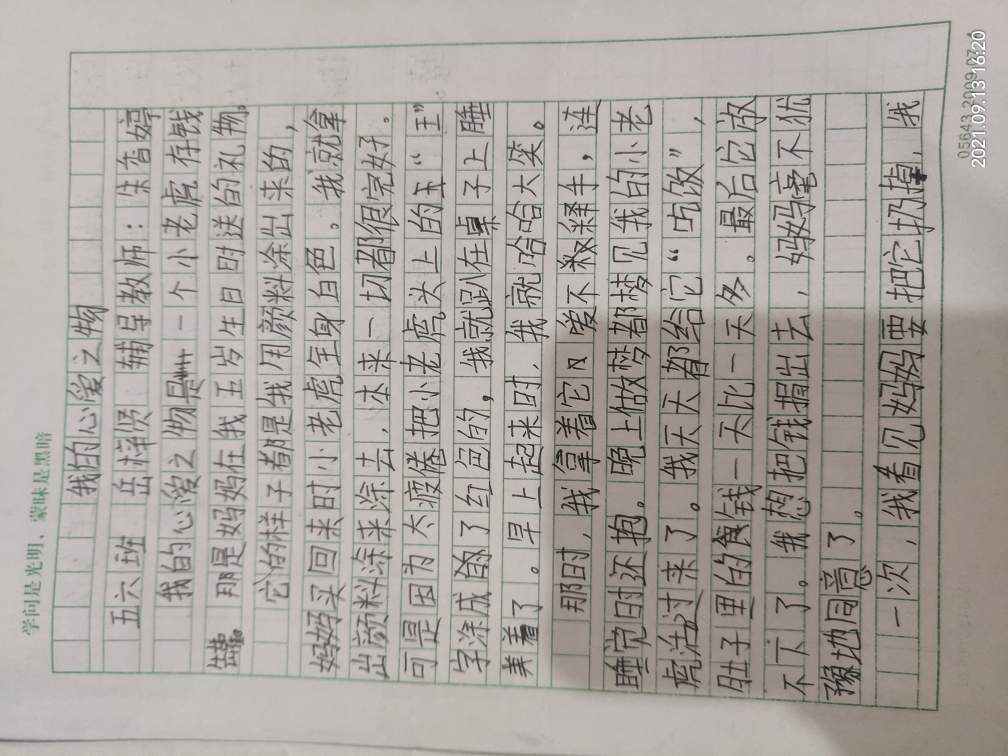 学问是光明，蒙昧是黑暗
我的心爱之物
五六班 岳梓贤 辅导教师：朱香婷
我的心爱之物是一个小老虎存钱
罐。那是妈妈在我五岁生日时送的礼物。
它的样子都是我用颜料涂出来的，
妈妈买回来时小老虎全身白色。我就拿
出颜料涂来涂去，本来一切都很完好．
可是因为太疲倦把小老虎头上的“王”
字涂成了红色的，我就趴在桌子上睡
着了。早上起来时，我就哈哈大笑。
那时，我拿着它爱不释手，连
睡觉时还抱。晚上做梦都梦见我的小老
虎活过来了。我天天都给它“吃饭”，
肚子里的食钱一天比一天多。最后它放
不下了。我想把钱捐出去，妈妈毫不犹
豫地同意了。
一次，我看见妈妈要把它扔掉，我
05643 2009.07
2021.09.13 16:20